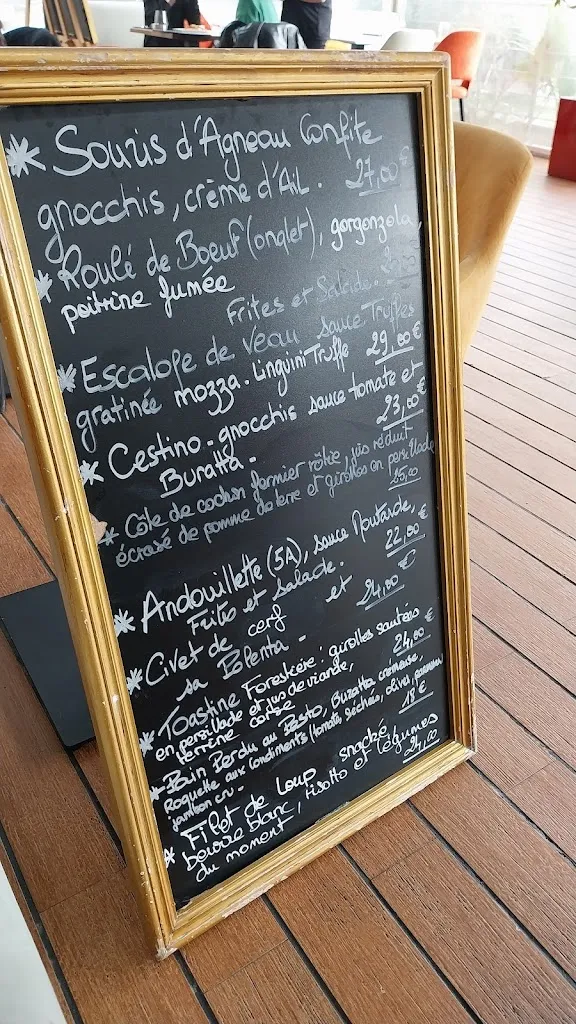 * Souris d'Agneau Confite
gnocchis, crème d'Ail. 27,00 €
* Roulé de Boeuf (onglet), gorgonzola,
poitrine fumée
Frites et Salade.
* Escalope de Veau sauce Truffes
gratinée mozza. Linguini Truffe 29,00 €
* Cestino - gnocchis sauce tomate et
Buratta - 23,00 €
* Côte de cochon fermier rôtie, jus réduit
écrasé de pomme de terre et girolles en persillade
25,00
* Andouillette (5A), sauce Moutarde,
Frites et Salade. 22,00 €
* Civet de cerf et
sa Polenta - 24,00 €
* Toastine Forestière : girolles sautées
en persillade et jus de viande, 24,00 €
terrine corse
* Pain Perdu au Pesto, Buratta crémeuse,
Roquette aux Condiments (tomate séchés, olives,
jambon cru - 18 €
* Filet de Loup snacké
beurre blanc, risotto et légumes
du moment 24,00